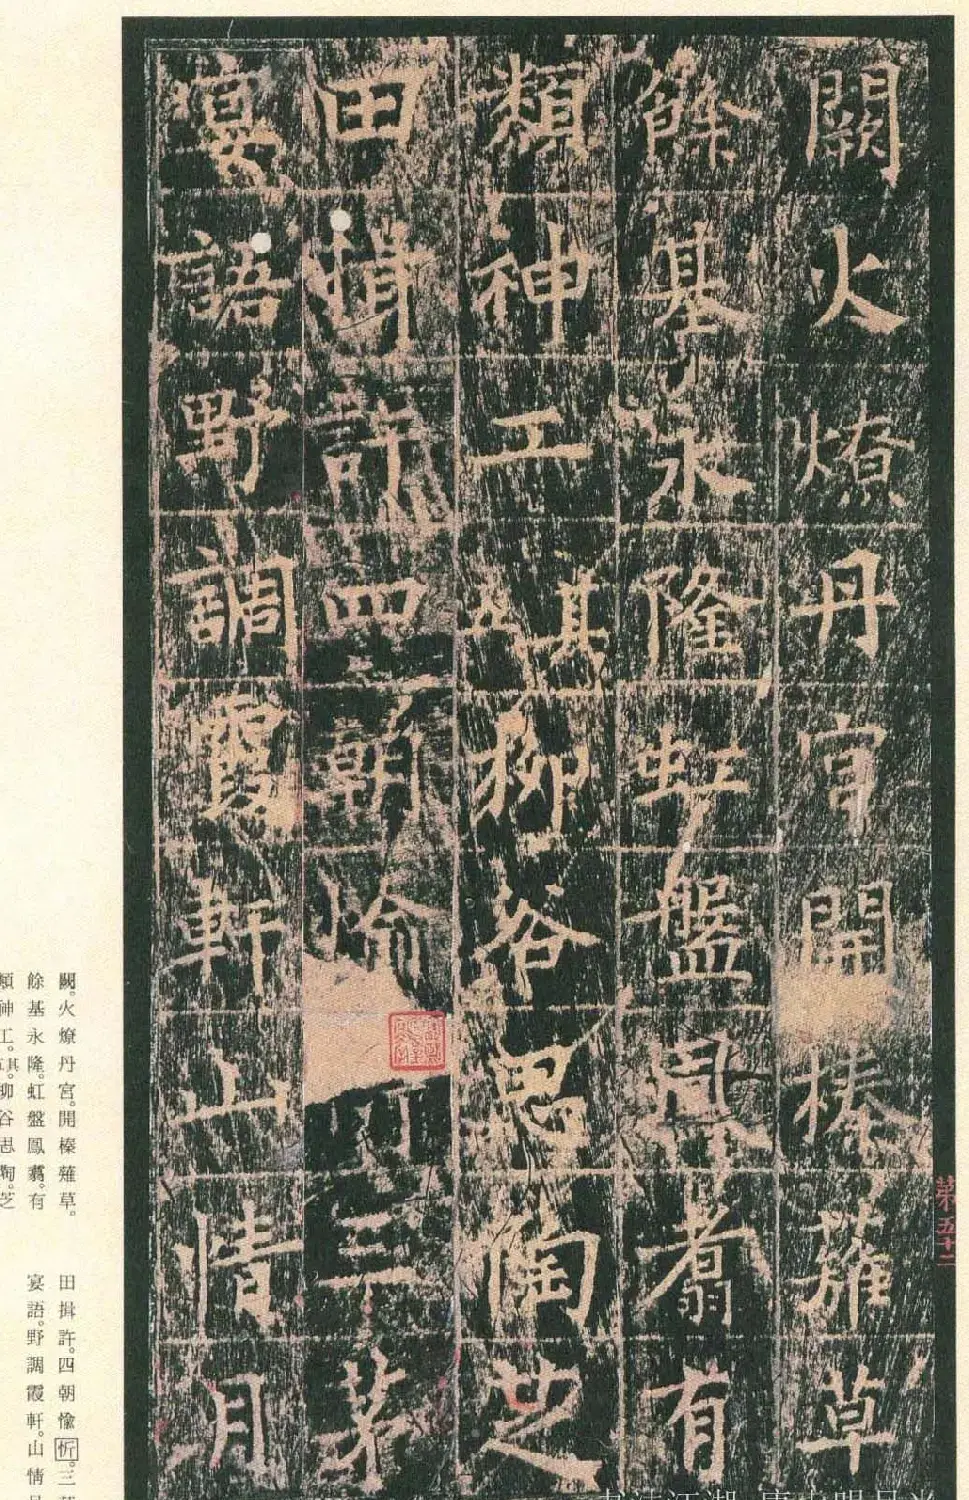 闕火燎丹宮開榛薙草
餘基永隆虹盤鳳翥有
類神工其五柳谷思陶芝
田揖許四朝愉忻三茅
宴語野調霞軒山情月
第五十二
闕。火燎丹宮。開榛薙草。
餘基永隆。虹盤鳳翥。有
類神工。其五。柳谷思陶。芝
田揖許。四朝愉忻。三
宴語。野調霞軒。山情